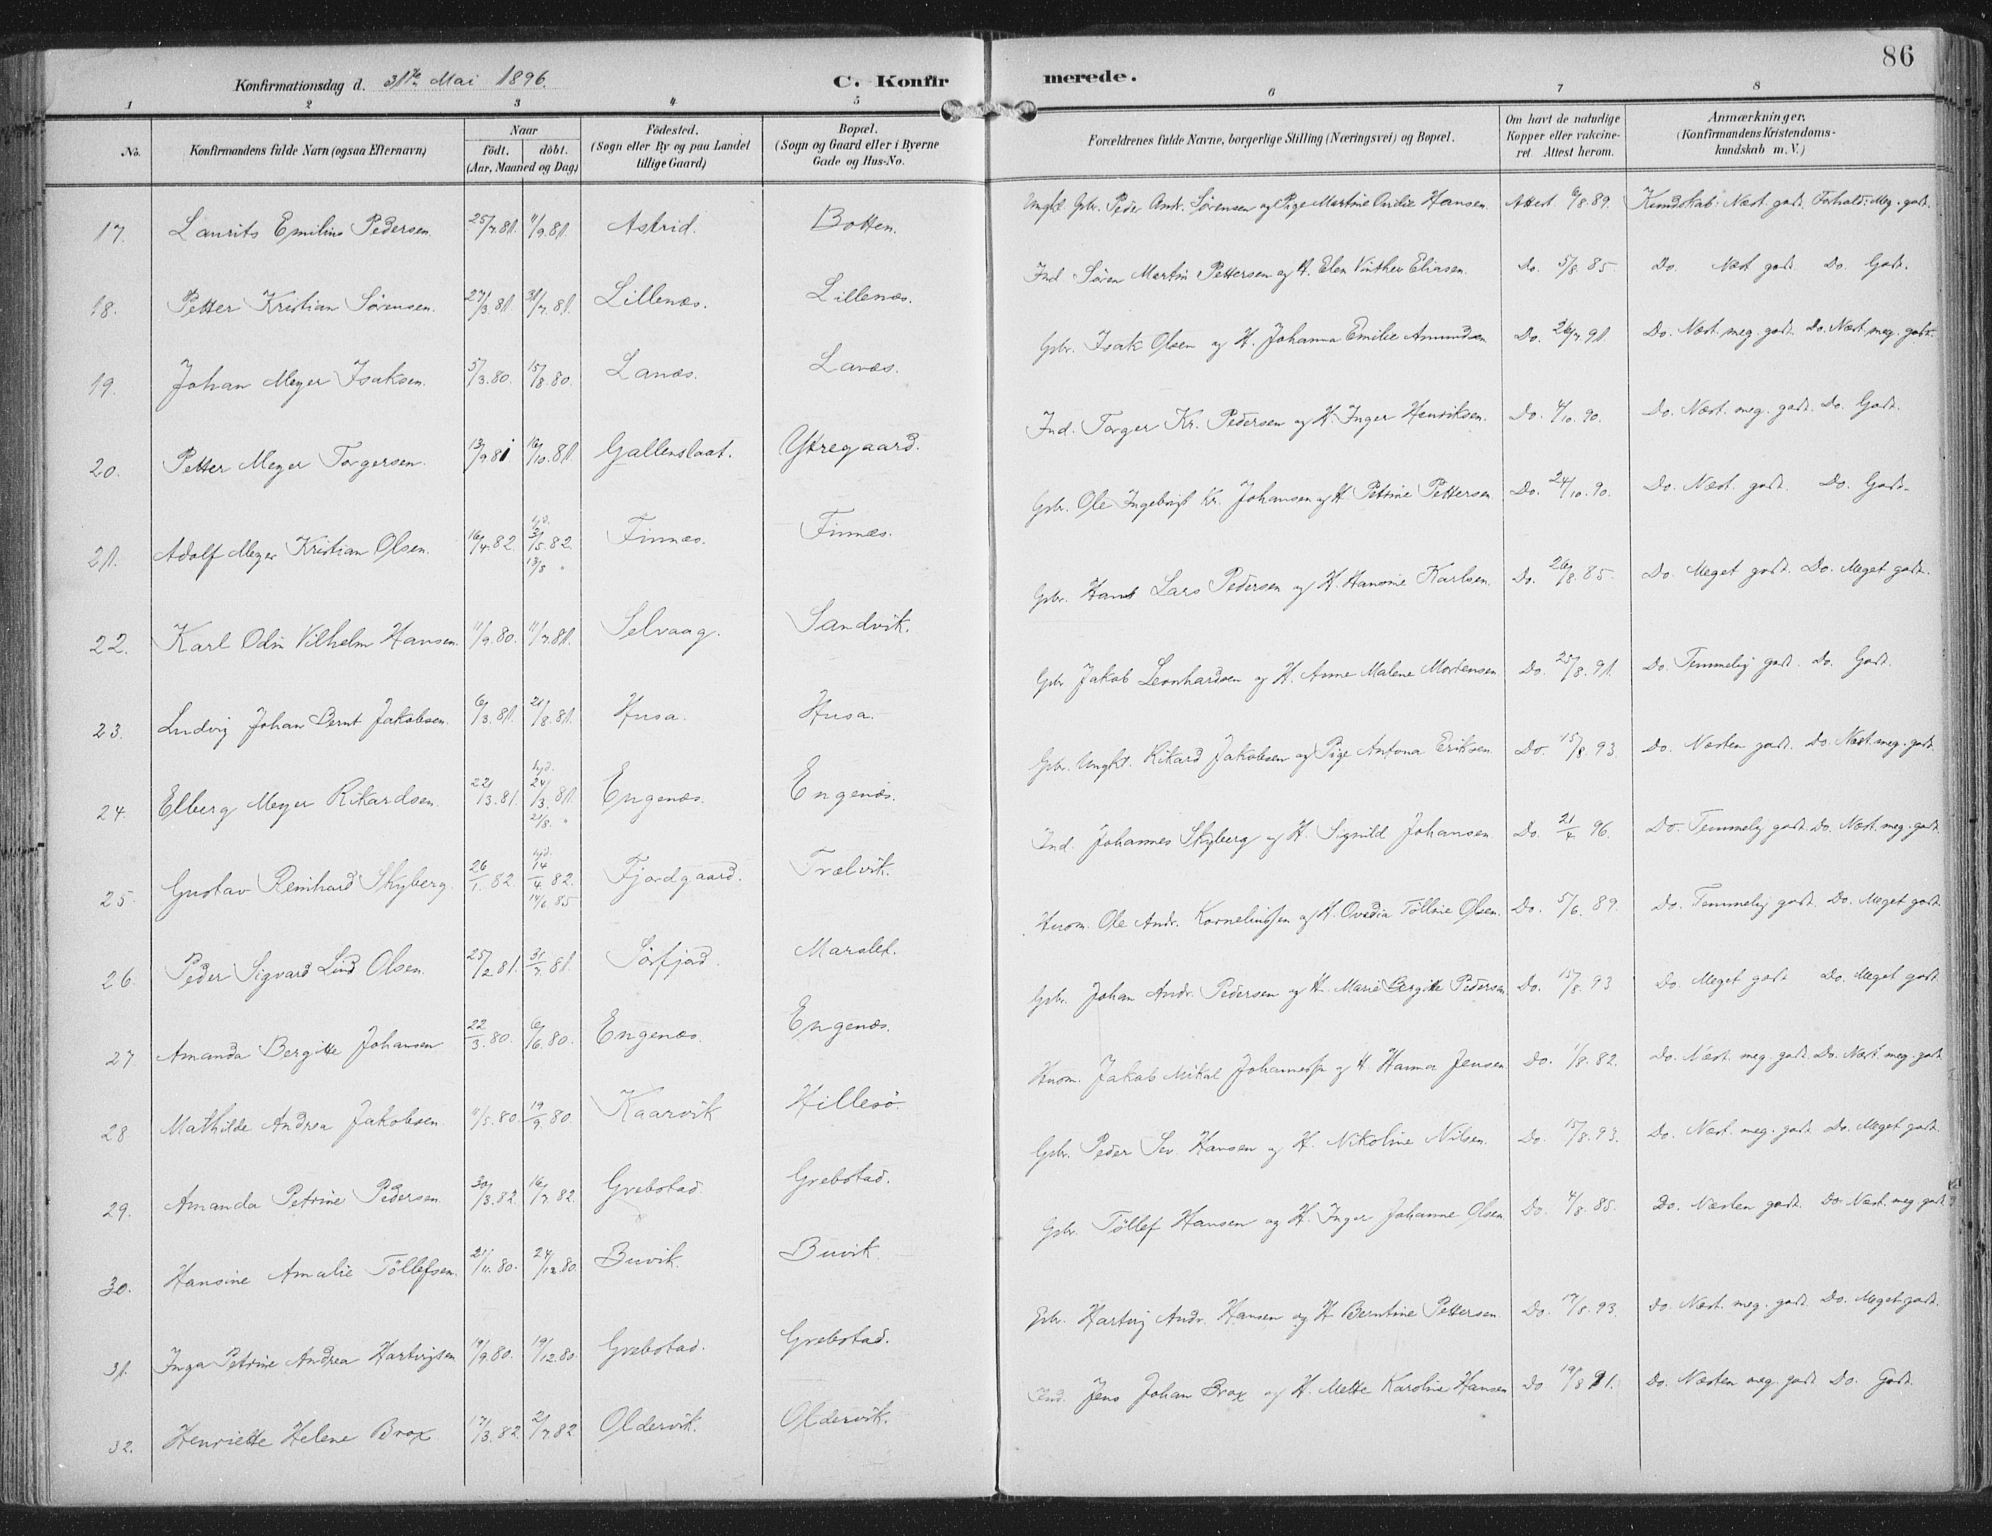 86
Konfirmationsdag d. 31te Mai 1896.
C. Konfirmerede.
1 2 3 4 5 6 7 8
No.
Konfirmandens fulde Navn (ogsaa Efternavn)
Naar
födt. döbt.
(Aar, Maaned og Dag)
Födested.
(Sogn eller By og paa Landet
tillige Gaard)
Bopæl.
(Sogn og Gaard eller i Byerne
Gade og Hus-No.
Forældrenes fulde Navne, borgerlige Stilling (Næringsvei) og Bopæl.
Om havt de naturlige
Kopper eller vakcine-
ret Attest herom.
Anmærkninger.
(Konfirmandens Kristendoms-
kundskab m. V.)
17. Laurits Emilius Pedersen. 25/7.81. 11/9.81. Astrid. Botten. Ungkl. Gbr. Peder Andr. Sörensen og Pige Martine Ovidie Hansen. Attest 6/8.89. Kundskab: Næst. godt. Forhold: Meg. godt.
18. Petter Kristian Sörensen. 27/3.81. 31/7.81. Lillenæs. Lillenæs. Ind. Sören Martin Pettersen og H. Elen Vinther Eliasen. Do. 5/8.85. Do. Næst godt Do. Godt.
19. Johan Meyer Isaksen. 5/3.80. 15/8.80. Lanæs. Lanæs. Gbr. Isak Olsen og H. Johanna Emilie Amundsen Do. 26/7.91. Do. Næst. meg. godt. Do. Næst. meg. godt.
20. Petter Meyer Torgersen. 13/9.81 16/10.81. Gallenslaat. Ytregaard. Ind. Torger Kr. Pedersen og H. Inger Henriksen. Do. 4/10.90. Do. Næst. meg. godt. Do. Godt.
21. Adolf Meyer Kristian Olsen. 16/4.82. hjd. 3/5.82. 13/8 " Finnæs. Finnæs. Gbr. Ole Ingebrigt Kr. Johansen og H. Petrine Pettersen Do. 24/10.90. Do. Næst. godt. Do. Godt.
22. Karl Odin Vilhelm Hansen. 11/9.80. 11/7.81. Selvaag. Sandvik. Gbr. Hans Lars Pedersen og H. Hansine Karlsen. Do. 26/8.85. Do. Meget godt. Do. Meget godt.
23. Ludvig Johan Bernt Jakobsen. 6/3.81. 21/8.81. Husa. Husa. Gbr. Jakob Leonhardsen og H. Anne Malene Mortensen Do. 25/8.91. Do. Temmelig godt. Do. Godt.
24. Elberg Meyer Rikardsen. 22/3.81. hjd. 24/3.81. 21/8. " Engenæs. Engenæs. Gbr. Ungkl. Rikard Jakobsen og Pige Antona Eriksen. Do. 15/8.93. Do. Næsten godt. Do. Næst. meg. godt.
25. Gustav Reinhard Skyberg. 26/1.82. hjd. 14/4.82. 14/6 85 Fjordgaard. Trælvik. Ind. Johannes Skyberg og H. Signild Johansen Do. 21/4 96. Do. Temmelig godt. Do. Næst. meg. godt.
26. Peder Sigvard Lind Olsen. 25/2.81. 31/7.81. Sörfjord. Marslet. Husm. Ole Andr. Korneliussen og H. Ovedia Töllsie Olsen. Do. 5/6.89. Do. Temmelig godt. Do. Meget godt
27. Amanda Bergitte Johansen 22/3.80. 6/6.80. Engenæs. Engenæs. Gbr. Johan Andr. Pedersen og H. Marie Bergitte Pedersen. Do. 15/8.93 Do. Meget godt Do. Meget godt.
28 Mathilde Andrea Jakobsen 11/5.80. 19/9.80. Kaarvik Hillesö. Husm. Jakob Mikal Johannessen og H. Hanna Jensen Do. 1/8.82. Do. Næst. meg. godt. Do. Næst. meg. godt
29. Amanda Petrine Pedersen 30/3.82 16/7.82. Grebstad. Grebstad. Gbr. Peder Sev. Hansen og H. Nikoline Nilsen. Do. 15/8.93. Do. Næst. meg. godt. Do. Meget godt.
30. Hansine Amalie Töllefsen. 21/11.80. 24/12.80. Buvik. Buvik. Gbr. Töllef Hansen og H. Inger Johanne Olsen. Do. 4/8.85. Do. Næsten godt. Do. Næst. meg. godt
31. Inga Petrine Andrea Hartvigsen 19/9.80. 19/12.80. Grebstad. Grebstad. Gbr. Hartvig Andr. Hansen og H. Berntine Pettersen. Do. 17/8.93. Do. Næst. meg. godt. Do. Meget godt.
32. Henriette Helene Brox. 17/3.82. 2/7.82 Oldervik. Oldervik. Ind. Jens Johan Brox og H. Mette Karoline Hansen Do 19/8 91. Do. Næsten meg. godt. Do. Godt.